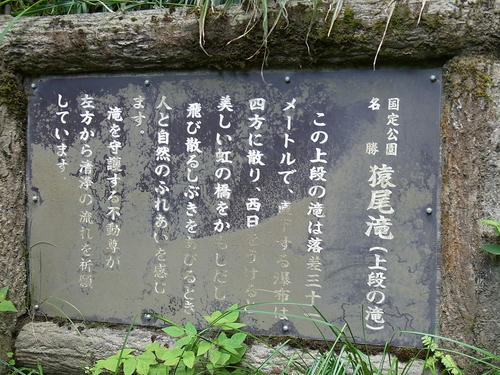 国定公園
名勝
猿尾滝(上段の滝)
この上段の滝は落差三十
メートルで、直下する瀑布は
四方に散り、西日をうけると
美しい虹の橋をかもしだし
飛び散るしぶきをあびるとき、
人と自然のふれあいを感じ
ます。
滝を守護する不動尊が
左方から清浄の流れを祈願
しています。